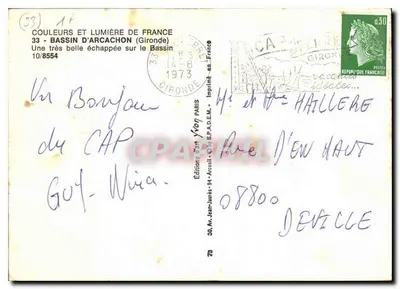 (33) 1F
COULEURS ET LUMIÈRE DE FRANCE
33 - BASSIN D'ARCACHON (Gironde)
Une très belle échappée sur le Bassin
10/8554
1973
GIRONDE
0,30
REPUBLIQUE FRANÇAISE
Un Bonjour
du CAP
GUY-
Mr et Mme HAILLERE
Rue D'EN HAUT
08800
DEVILLE
Editions d'art Yvon PARIS
30, Av. Jean-Jaurès-94-Arcueil - C. S.P.A.D.E.M. - Imprimé en France
73
Cparama.com